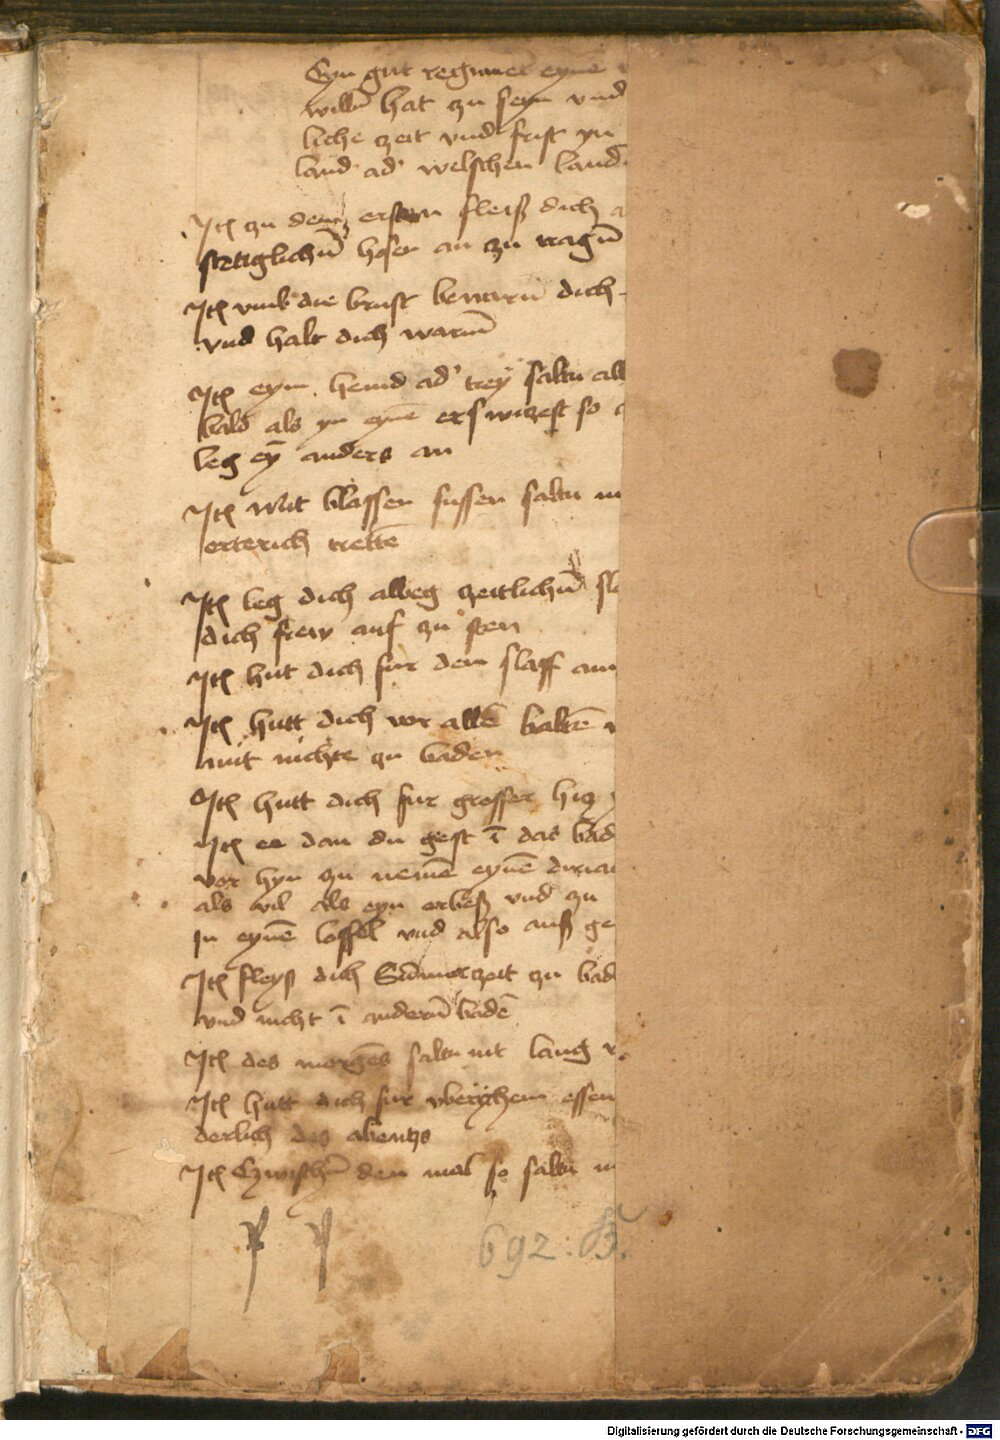 Eyn gut regimet eyne
willu hat zu sein vnd
liche zeit vnd frist yn
land ad' welschen land
Itē zu dem ersten fleiß dich a
stetiglichn̄ hosen an zu tragn̄
Itē vmb die brust bewarn̄ dich
vnd halt dich warm̄
Itē eym hemd ad' trey saltu all
bald als yn eynē erswiczest so
leg eȳ anders an
Itē Mit blassen fussen saltu
erterich trettē
Itē leg dich albeg zeitlichn̄ sla
dich frew auf zu sten
Itē hut dich fur dem slaff am
Itē hutt dich vor allē kaltē
mit nichte zu baden
Itē hutt dich fur grosser hiz
Itē ee dan du gest ī das bad
vor hyn zu nemē eynē driac
als vil als eyn erbeß vnd zu
In eynē loffel vnd also auß ge
Itē fleyß dich Sūmerzeit zu bad
vnd nicht ī andern̄ badē
Itē des morgēs saltu nit lang
Itē hutt dich fur vberychem essen
derlich des abentzs
Itē Czwischn̄ den mal so saltu
692:
Digitalisierung gefördert durch die Deutsche Forschungsgemeinschaft - DFG